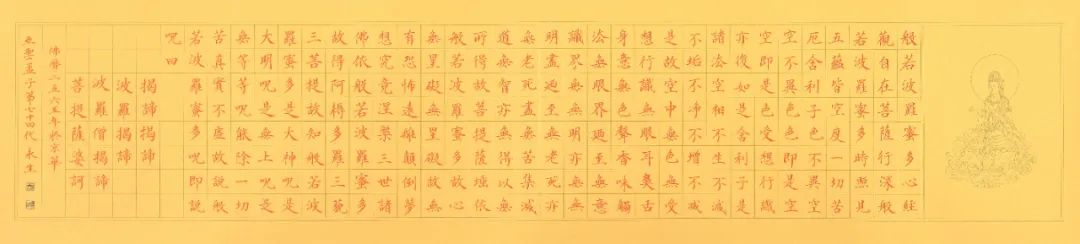 般若波羅蜜多心経
觀自在菩薩行深般
若波羅蜜多時照見
五蘊皆空度一切苦
厄舍利子色不異空
空不異色色即是空
空即是色受想行識
亦復如是舍利子是
諸法空相不生不滅
不垢不淨不增不減
是故空中無色無受
想行識無眼耳鼻舌
身意無色聲香味觸
法無眼界廼至無意
識界無無明亦無無
明盡廼至無老死亦
無老死盡無苦集滅
道無智亦無得以無
所得故菩提薩埵依
般若波羅蜜多故心
無罣礙無罣礙故無
有恐怖遠離顛倒夢
想究竟涅槃三世諸
佛依般若波羅蜜多
故得阿耨多羅三藐
三菩提故知般若波
羅蜜多是大神呪是
大明呪是無上呪是
無等等呪能除一切
苦真實不虛故說般
若波羅蜜多呪即說
呪曰
揭諦揭諦
波羅揭諦
波羅僧揭諦
菩提薩婆訶
佛曆二五六五年於京華
亞聖孟子第七十四代永生